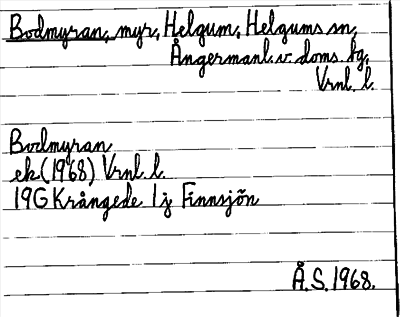 Bodmyran, myr, Helgum, Helgums sn,
Ångermanl. v. doms. fg,
Vrnl. l.
Bodmyran
ek (1968) Vrnl. l.
19G Krångede 1j Finnsjön
Å.S. 1968.